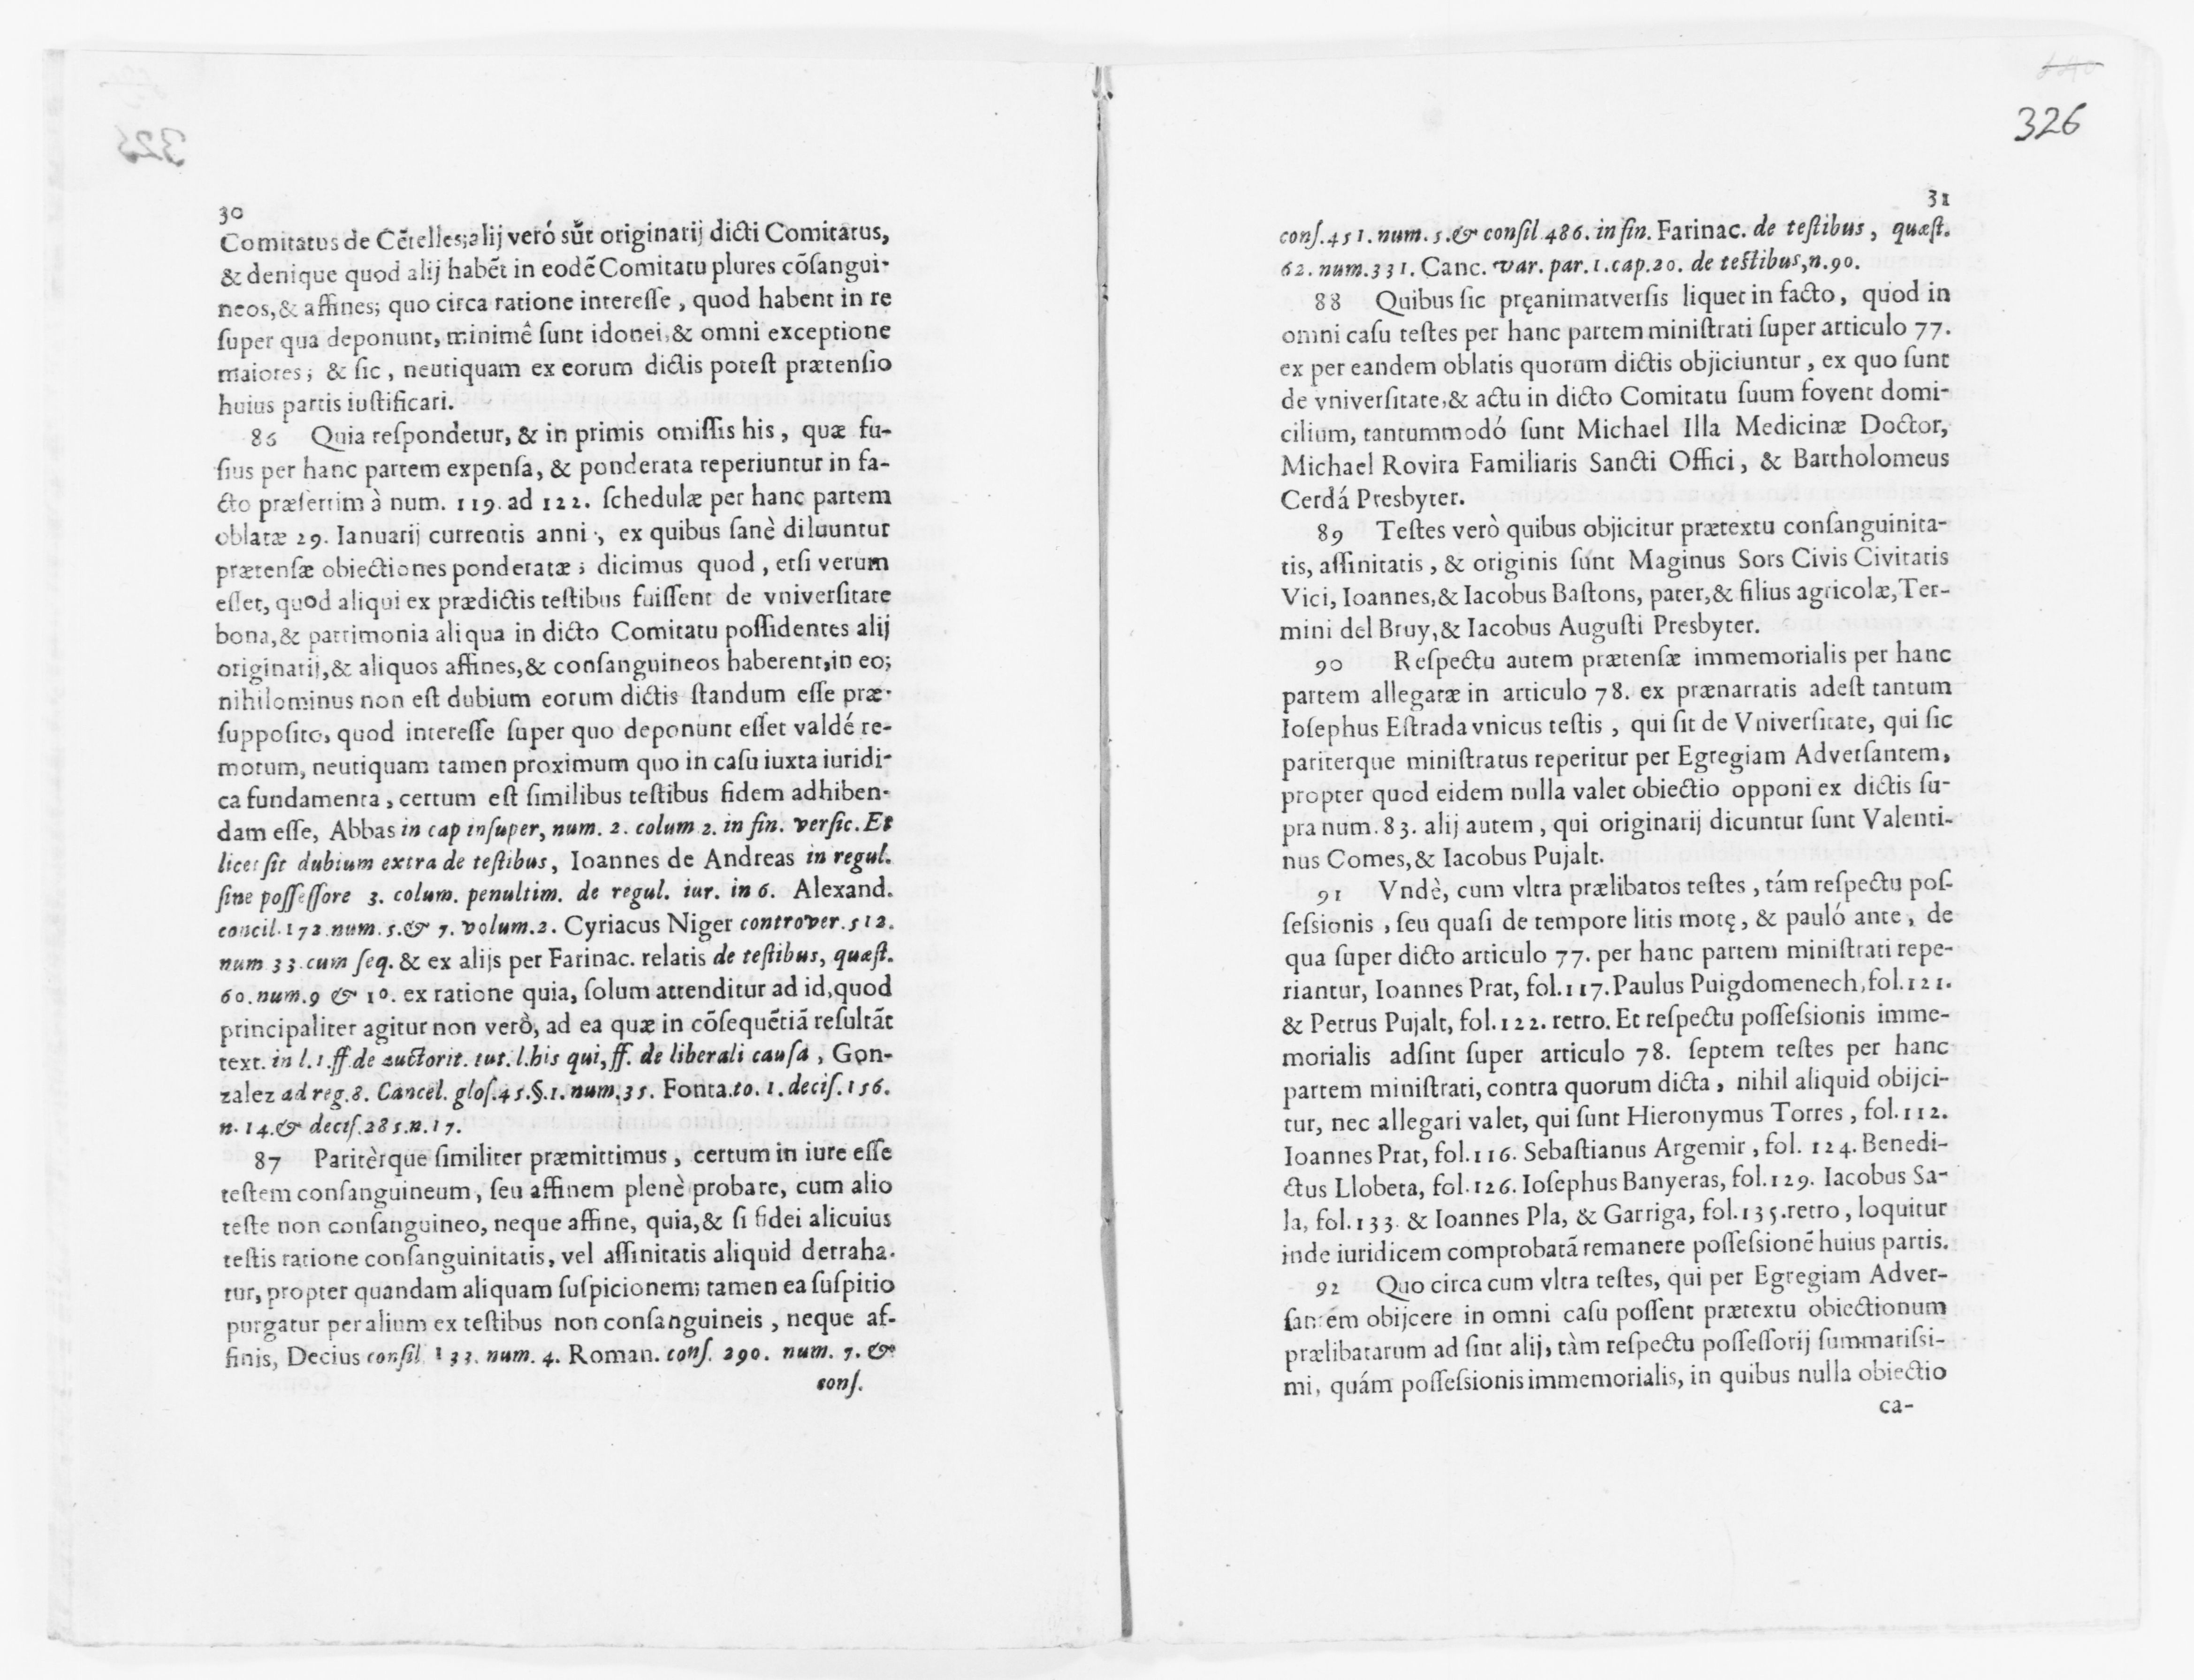 30
Comitatus de Cẽtelles; alij veró sũt originarij dicti Comitatus,
& denique quod alij habẽt in eodẽ Comitatu plures cõſangui-
neos, & affines; quo circa ratione intereſſe, quod habent in re
ſuper qua deponunt, minimê ſunt idonei, & omni exceptione
maiores; & ſic, neutiquam ex eorum dictis poteſt prætenſio
huius partis iuſtificari.
86 Quia reſpondetur, & in primis omiſſis his, quæ fu-
ſius per hanc partem expenſa, & ponderata reperiuntur in fa-
cto præſertim à num. 119. ad 122. ſchedulæ per hanc partem
oblatæ 29. Ianuarij currentis anni, ex quibus ſanè diluuntur
prætenſæ obiectiones ponderatæ; dicimus quod, etſi verum
eſſet, quod aliqui ex prædictis teſtibus fuiſſent de vniverſitate
bona, & patrimonia aliqua in dicto Comitatu poſſidentes alij
originarij, & aliquos affines, & conſanguineos haberent, in eo;
nihilominus non eſt dubium eorum dictis ſtandum eſſe præ-
ſuppoſito, quod intereſſe ſuper quo deponunt eſſet valdé re-
motum, neutiquam tamen proximum quo in caſu iuxta iuridi-
ca fundamenta, certum eſt ſimilibus teſtibus fidem adhiben-
dam eſſe, Abbas in cap inſuper, num. 2. colum 2. in fin. verſic. Et
licet ſit dubium extra de teſtibus, Ioannes de Andreas in regul.
ſine poſſeſſore 3. colum. penultim. de regul. iur. in 6. Alexand.
concil. 172. num. 5. & 7. volum. 2. Cyriacus Niger controver. 512.
num 33. cum ſeq. & ex alijs per Farinac. relatis de teſtibus, quæſt.
60. num. 9 & 10. ex ratione quia, ſolum attenditur ad id, quod
principaliter agitur non verò, ad ea quæ in cõſequẽtiã reſultãt
text. in l. 1. ff. de auctorit. tut. l. his qui, ff. de liberali cauſa, Gon-
zalez ad reg. 8. Cancel. gloſ. 45. §. 1. num. 35. Fonta. to. 1. deciſ. 156.
n. 14. & deciſ. 285. n. 17.
87 Paritèrque ſimiliter præmittimus, certum in iure eſſe
teſtem conſanguineum, ſeu affinem plenè probare, cum alio
teſte non conſanguineo, neque affine, quia, & ſi fidei alicuius
teſtis ratione conſanguinitatis, vel affinitatis aliquid detraha-
tur, propter quandam aliquam ſuſpicionem; tamen ea ſuſpitio
purgatur per alium ex teſtibus non conſanguineis, neque af-
finis, Decius conſil 133. num. 4. Roman. conſ. 290. num. 7. &
conſ.
326
31
conſ. 451. num. 5. & conſil. 486. in fin. Farinac. de teſtibus, quæſt.
62. num. 331. Canc. var. par. 1. cap. 20. de teſtibus, n. 90.
88 Quibus ſic pręanimatverſis liquet in facto, quod in
omni caſu teſtes per hanc partem miniſtrati ſuper articulo 77.
ex per eandem oblatis quorum dictis objiciuntur, ex quo ſunt
de vniverſitate, & actu in dicto Comitatu ſuum fovent domi-
cilium, tantummodó ſunt Michael Illa Medicinæ Doctor,
Michael Rovira Familiaris Sancti Offici, & Bartholomeus
Cerdá Presbyter.
89 Teſtes verò quibus objicitur prætextu conſanguinita-
tis, affinitatis, & originis ſunt Maginus Sors Civis Civitatis
Vici, Ioannes, & Iacobus Baſtons, pater, & filius agricolæ, Ter-
mini del Bruy, & Iacobus Auguſti Presbyter.
90 Reſpectu autem prætenſæ immemorialis per hanc
partem allegatæ in articulo 78. ex prænarratis adeſt tantum
Ioſephus Eſtrada vnicus teſtis, qui ſit de Vniverſitate, qui ſic
pariterque miniſtratus reperitur per Egregiam Adverſantem,
propter quod eidem nulla valet obiectio opponi ex dictis ſu-
pra num. 83. alij autem, qui originarij dicuntur ſunt Valenti-
nus Comes, & Iacobus Pujalt.
91 Vndè, cum vltra prælibatos teſtes, tám reſpectu poſ-
ſeſsionis, ſeu quaſi de tempore litis motę, & pauló ante, de
qua ſuper dicto articulo 77. per hanc partem miniſtrati repe-
riantur, Ioannes Prat, fol. 117. Paulus Puigdomenech, fol. 121.
& Petrus Pujalt, fol. 122. retro. Et reſpectu poſſeſsionis imme-
morialis adſint ſuper articulo 78. ſeptem teſtes per hanc
partem miniſtrati, contra quorum dicta, nihil aliquid obijci-
tur, nec allegari valet, qui ſunt Hieronymus Torres, fol. 112.
Ioannes Prat, fol. 116. Sebaſtianus Argemir, fol. 124. Benedi-
ctus Llobeta, fol. 126. Ioſephus Banyeras, fol. 129. Iacobus Sa-
la, fol. 133. & Ioannes Pla, & Garriga, fol. 135. retro, loquitur
inde iuridicem comprobatã remanere poſſeſsionẽ huius partis.
92 Quo circa cum vltra teſtes, qui per Egregiam Adver-
ſantem obijcere in omni caſu poſſent prætextu obiectionum
prælibatarum ad ſint alij, tàm reſpectu poſſeſſorij ſummariſsi-
mi, quám poſſeſsionis immemorialis, in quibus nulla obiectio
ca-